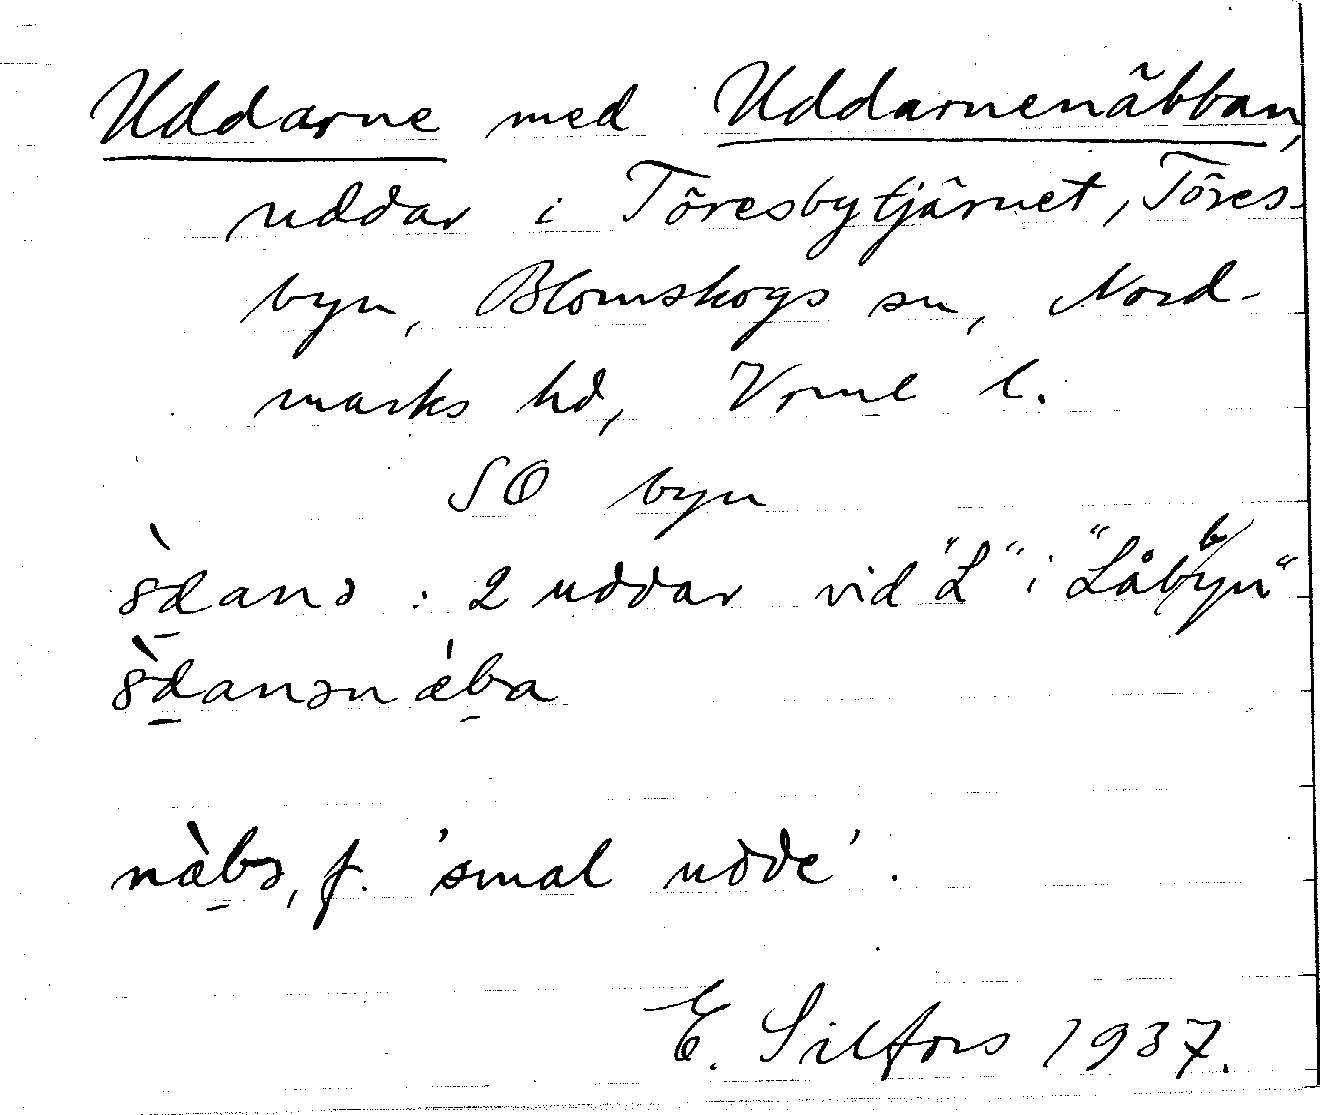 Uddarne med Uddarnenäbban,
uddar i Töresbytjärnet, Töres-
byn, Blomskogs sn, Nord-
marks hd, Vrml l.
SO byn
: 2 uddar vid "L" i "Låbbyn"
f. 'smal udde'.
E. Silfors 1937.